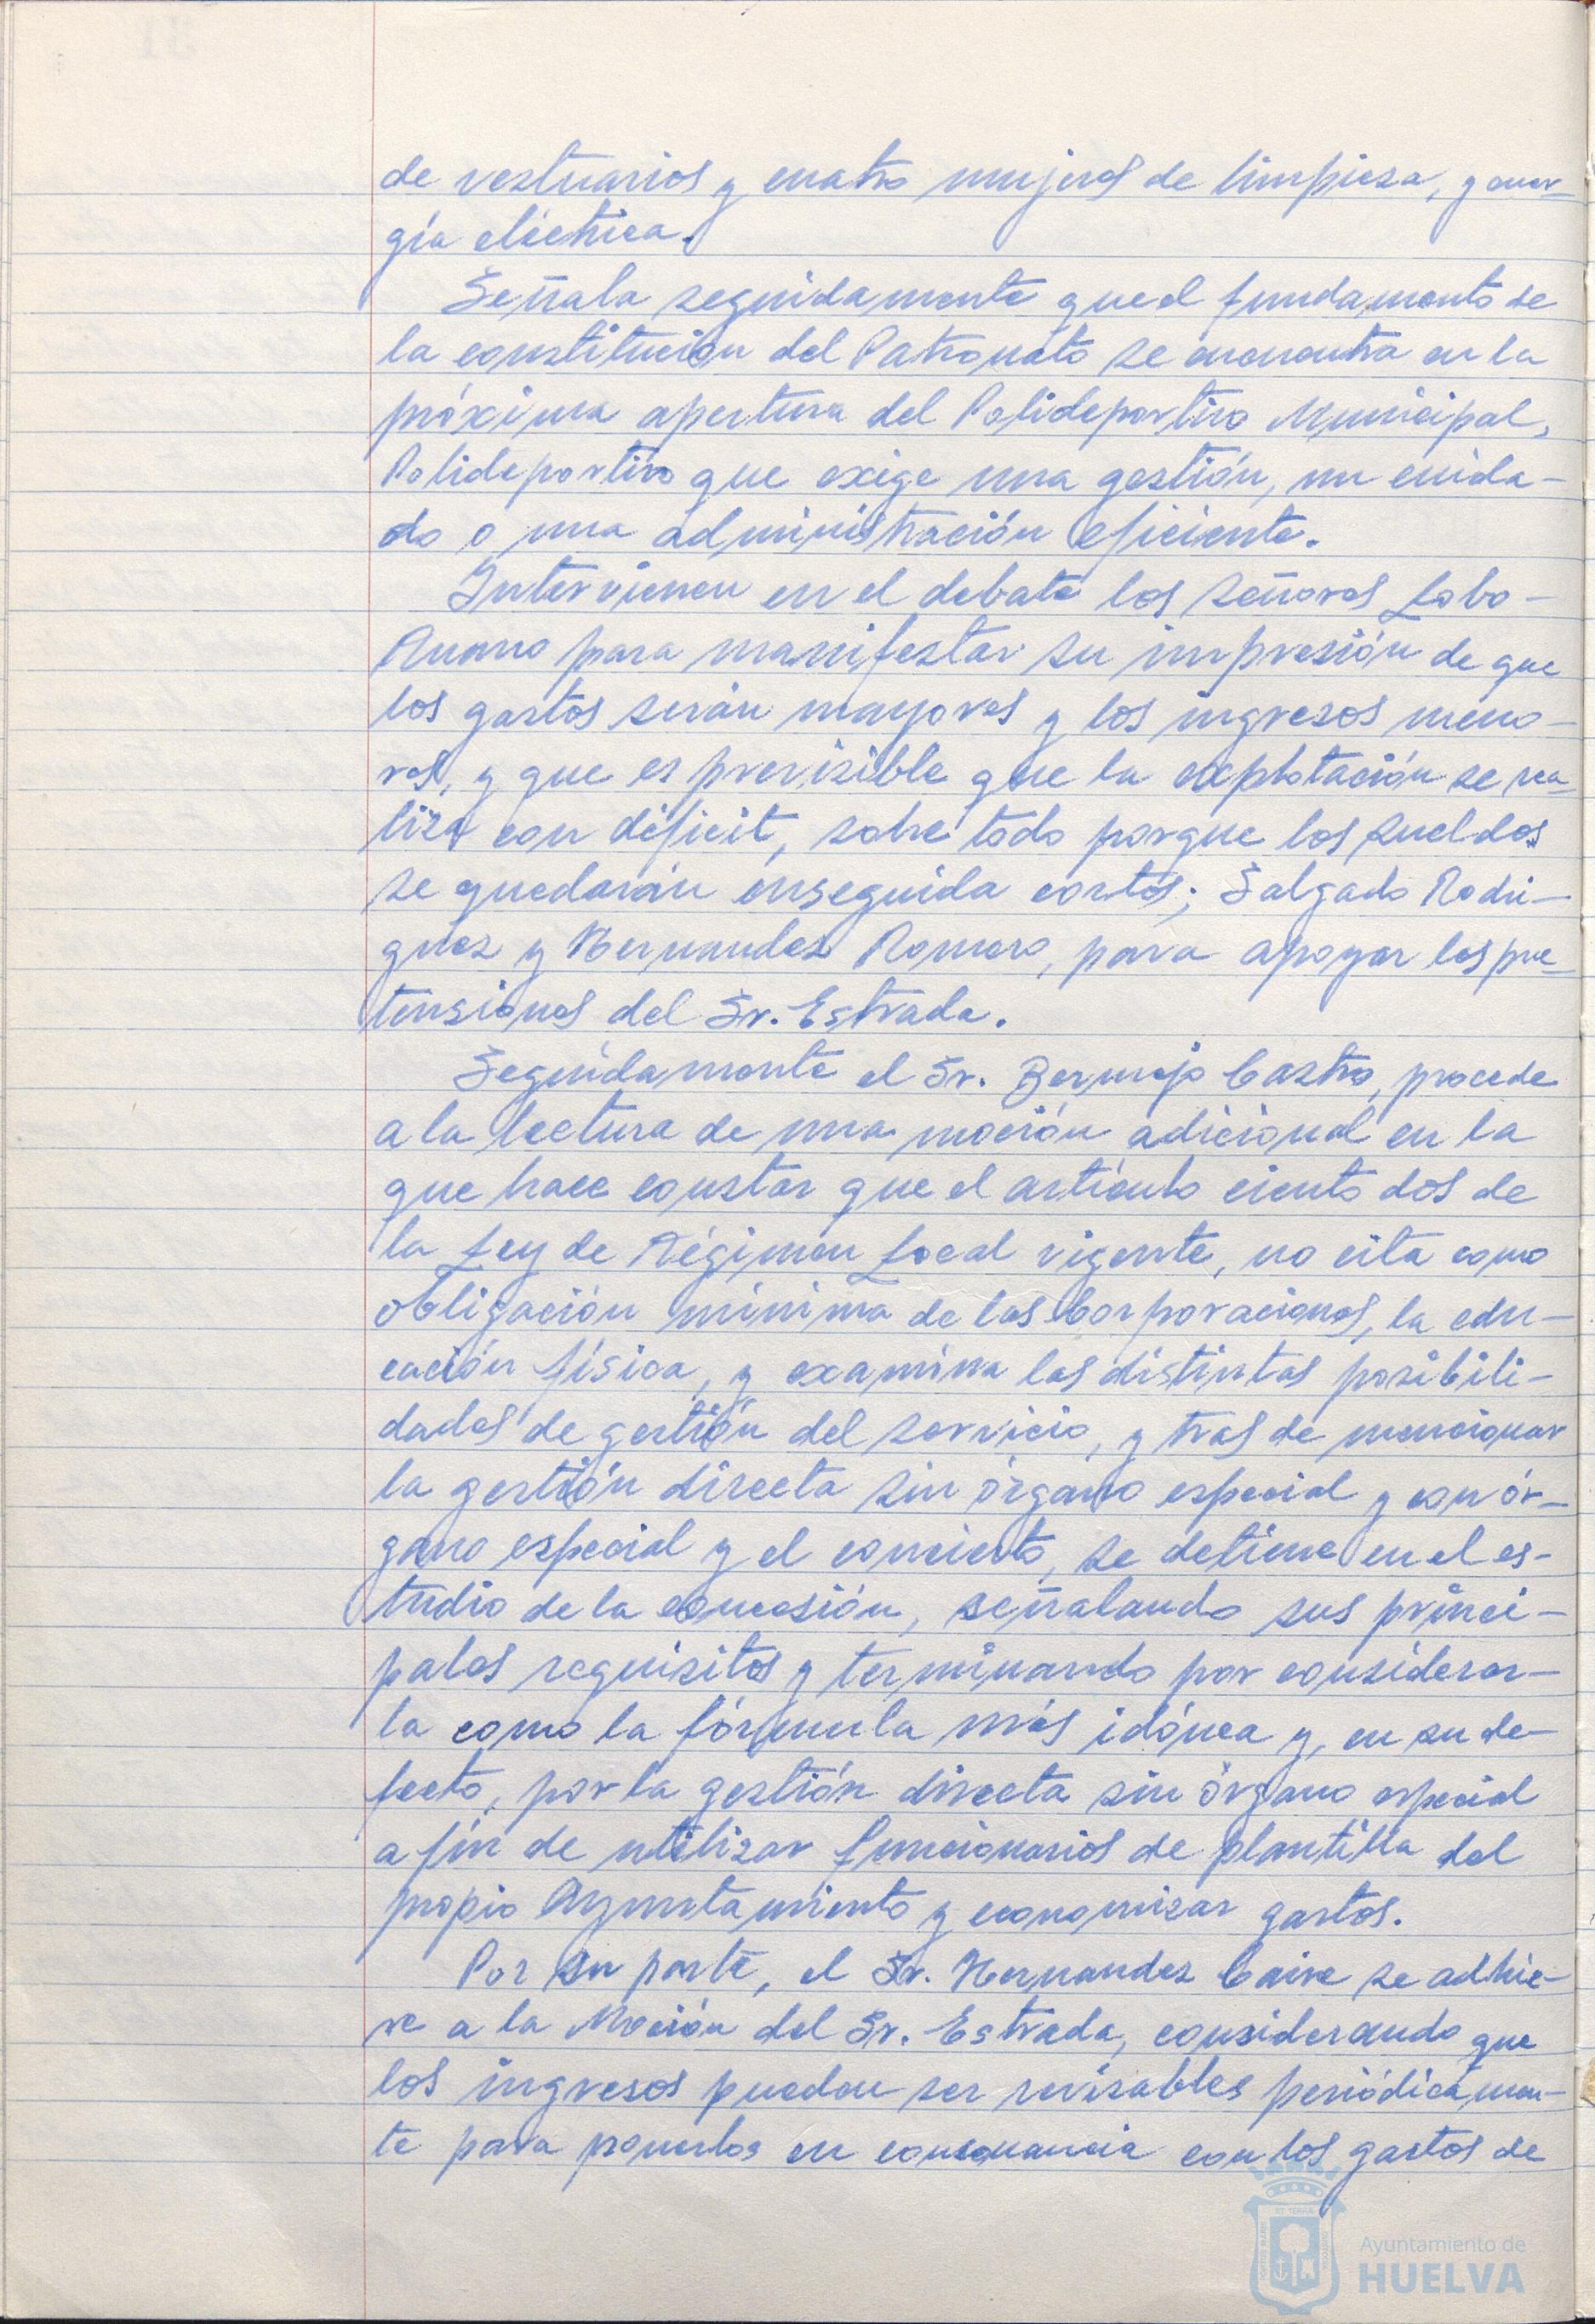 de vestuarios y cuatro mujeres de limpieza, y ener-
gía eléctrica.
Señala seguidamente que el fundamento de
la constitución del Patronato se encuentra en la
próxima apertura del Polideportivo Municipal,
Polideportivo que exige una gestión, un cuida-
do o una administración eficiente.
Intervienen en el debate los señores Lobo-
para manifestar su impresión de que
los gastos serán mayores y los ingresos meno-
res, y que es previsible que la explotación se rea-
liza con déficit, sobre todo porque los sueldos
se quedarán enseguida cortos; Salgado Rodri-
guez y Hernandez Romero, para apoyar las pre-
tensiones del Sr. Estrada.
Seguidamente el Sr. Bermejo Castro, procede
a la lectura de una moción adicional en la
que hace constar que el artículo ciento dos de
la Ley de Régimen Local vigente, no cita como
obligación mínima de las Corporaciones, la edu-
cación física, y examina las distintas posibili-
dades de gestión del servicio, y tras de mencionar
la gestión directa sin órgano especial y con ór-
gano especial y el concierto, se detiene en el es-
tudio de la concesión, señalando sus princi-
pales requisitos y terminando por considerar-
la como la fórmula más idónea y, en su de-
fecto, por la gestión directa sin órgano especial
a fin de utilizar funcionarios de plantilla del
propio Ayuntamiento y economizar gastos.
Por su parte, el Sr. Hernandez Caire se adhie-
re a la Moción del Sr. Estrada, considerando que
los ingresos puedan ser revisables periódicamen-
te para ponerlos en consonancia con los gastos de
Ayuntamiento de
HUELVA